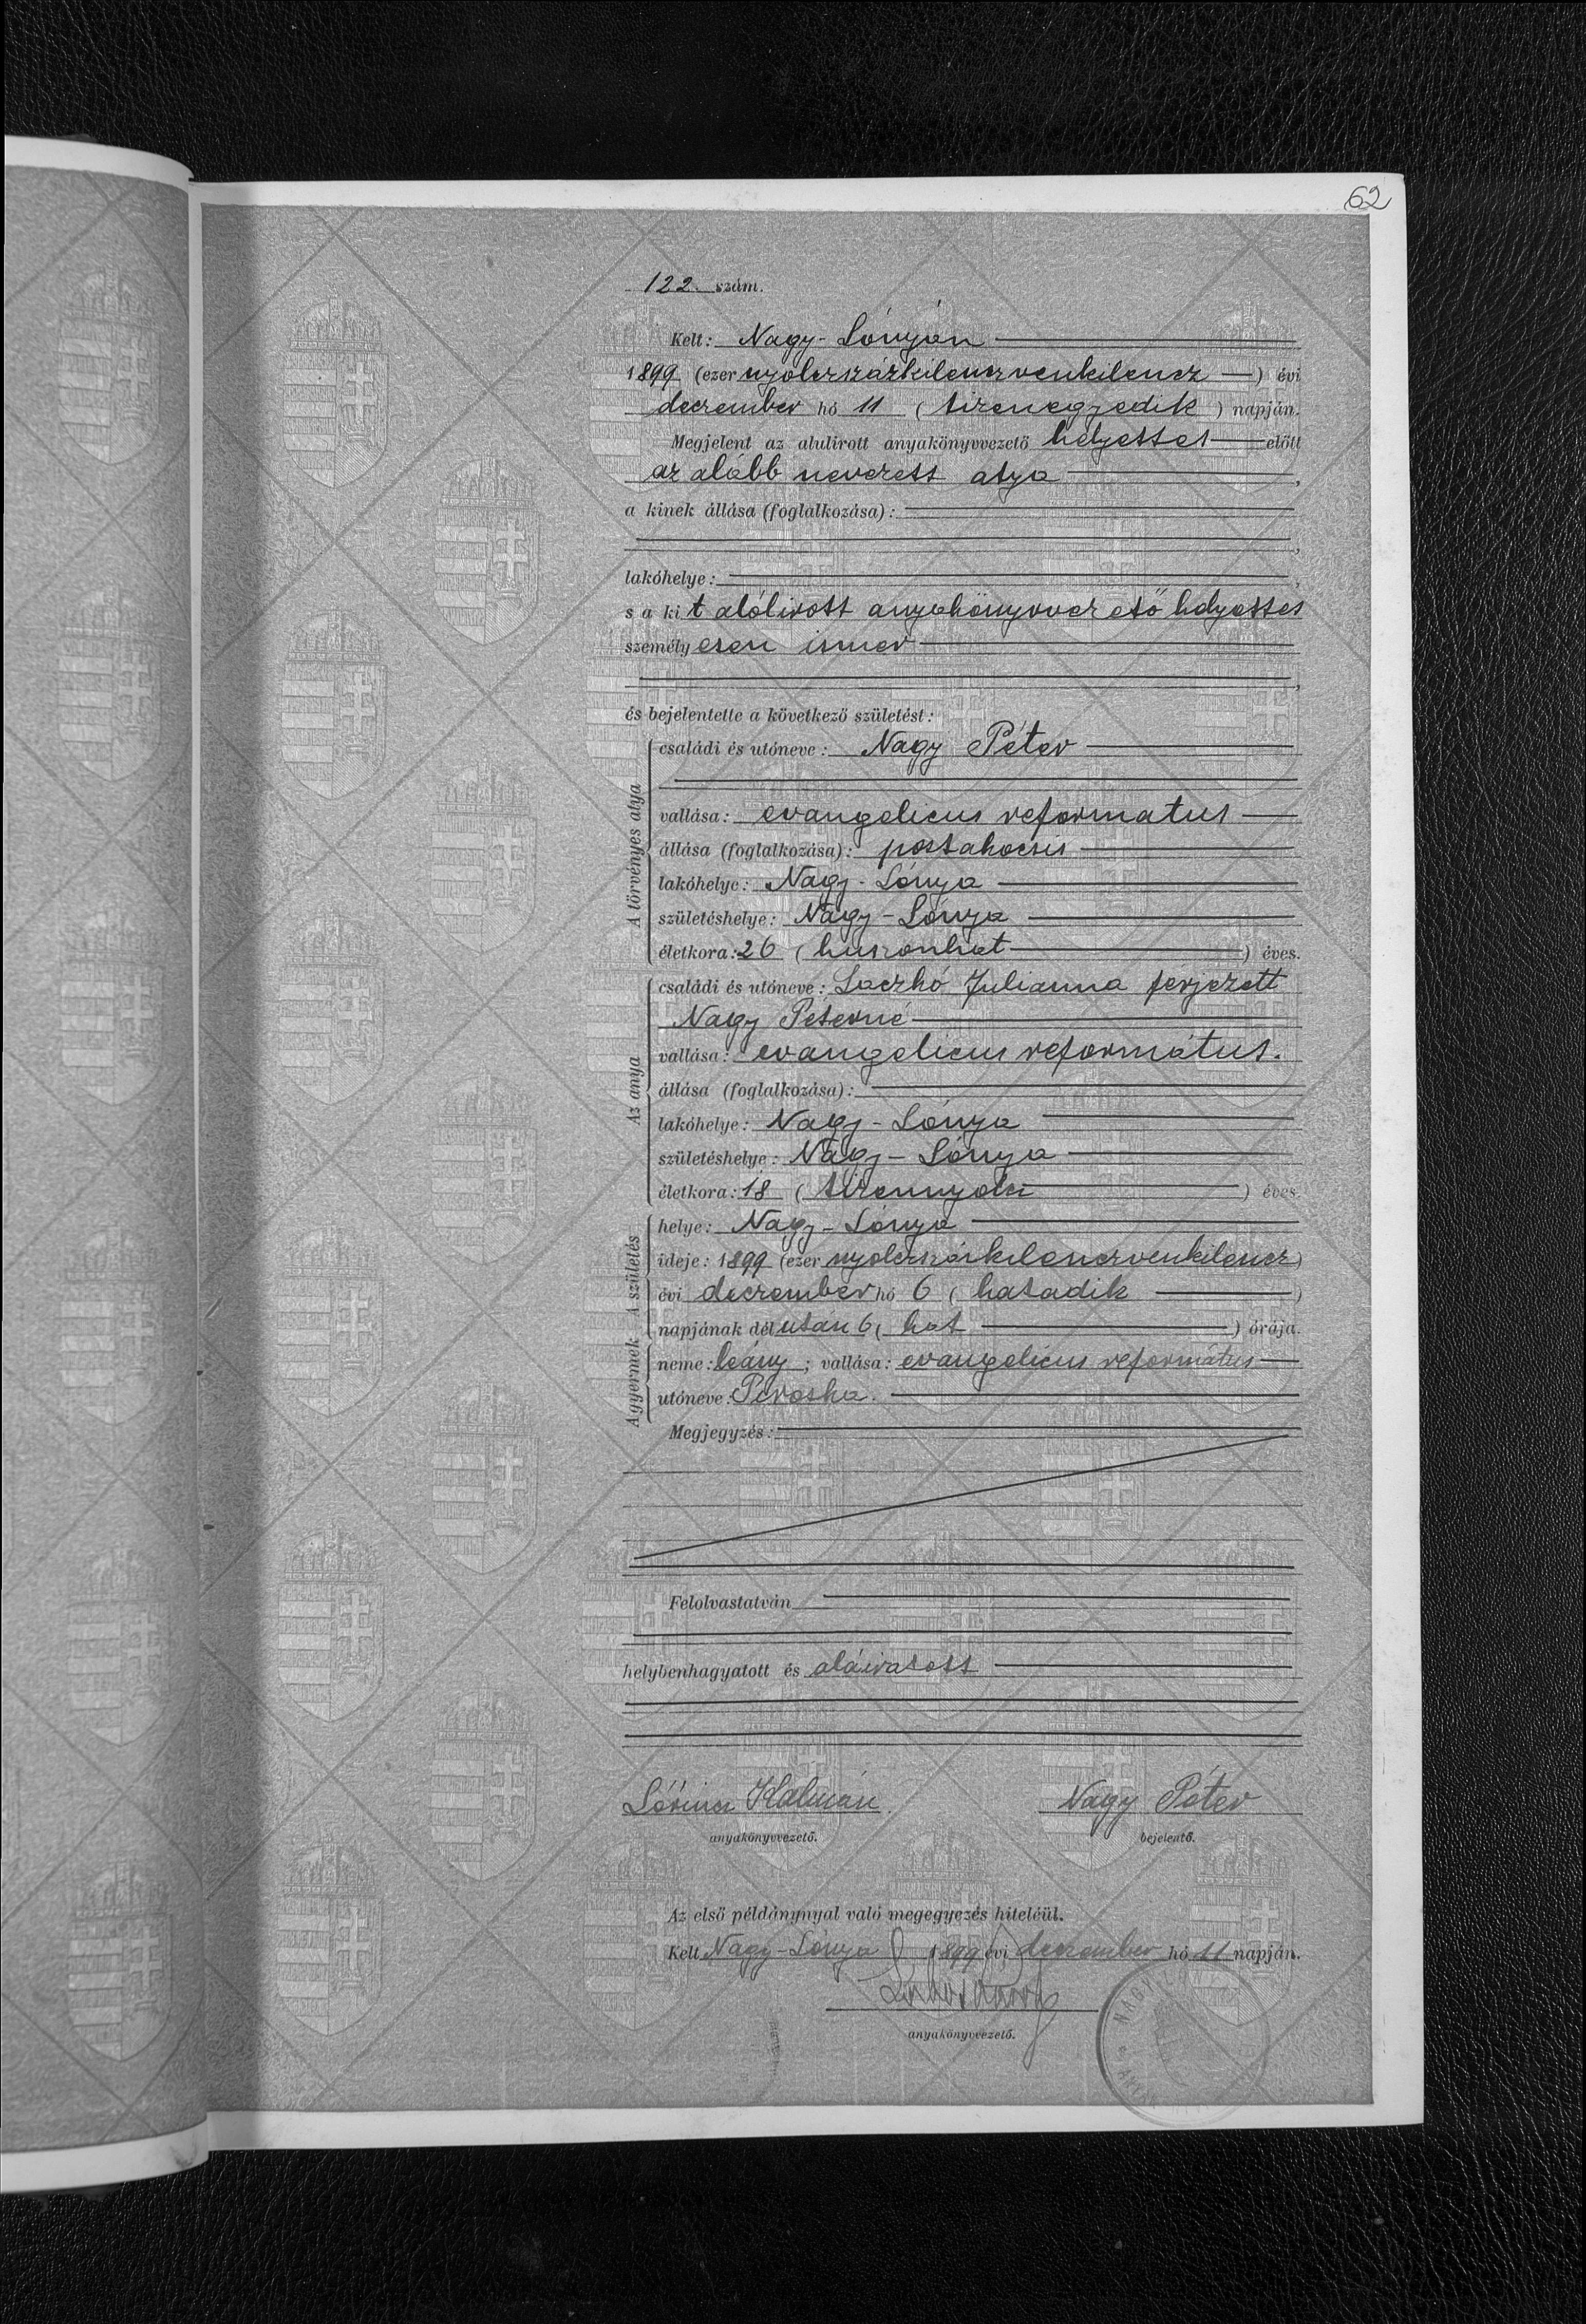 62
122. szám.
Kelt: Nagy-Lónyán
1899 (ezer nyolczszázkilenczvenkilencz) évi
deczember hó 11 (tizenegyedik) napján.
Megjelent az alulirott anyakönyvvezető helyettes előtt
az alább nevezett atya,
a kinek állása (foglalkozása):
lakóhelye:
s a kit alólirott anyakönyvvezető helyettes
személyesen ismer
és bejelentette a következő születést:
A törvényes atya
családi és utóneve: Nagy Péter
vallása: evangelicus reformatus
állása (foglalkozása): postakocsis
lakóhelye: Nagy-Lónya
születéshelye: Nagy-Lónya
életkora: 26 (huszonhat) éves.
Az anya
családi és utóneve: Laczkó Julianna ferjezett
Nagy Péterné
vallása: evangelicus református.
állása (foglalkozása):
lakóhelye: Nagy-Lónya
születéshelye: Nagy-Lónya
életkora: 18 (tizennyolcz) éves.
A születés
helye: Nagy-Lónya
ideje: 1899 (ezer nyolczszázkilenczvenkilencz)
évi deczember hó 6 (hatadik)
napjának délután 6 (hat) órája.
A gyermek
neme: leány; vallása: evangelicus református
utóneve: Piroska.
Megjegyzés:
Felolvastatván
helybenhagyatott és aláiratott
Lőrincz Kálmán Nagy Péter
anyakönyvvezető. bejelentő.
Az első példánynyal való megegyezés hiteléül.
Kelt Nagy-Lónya 1899 évi deczember hó 11 napján.
anyakönyvvezető.
NAGY